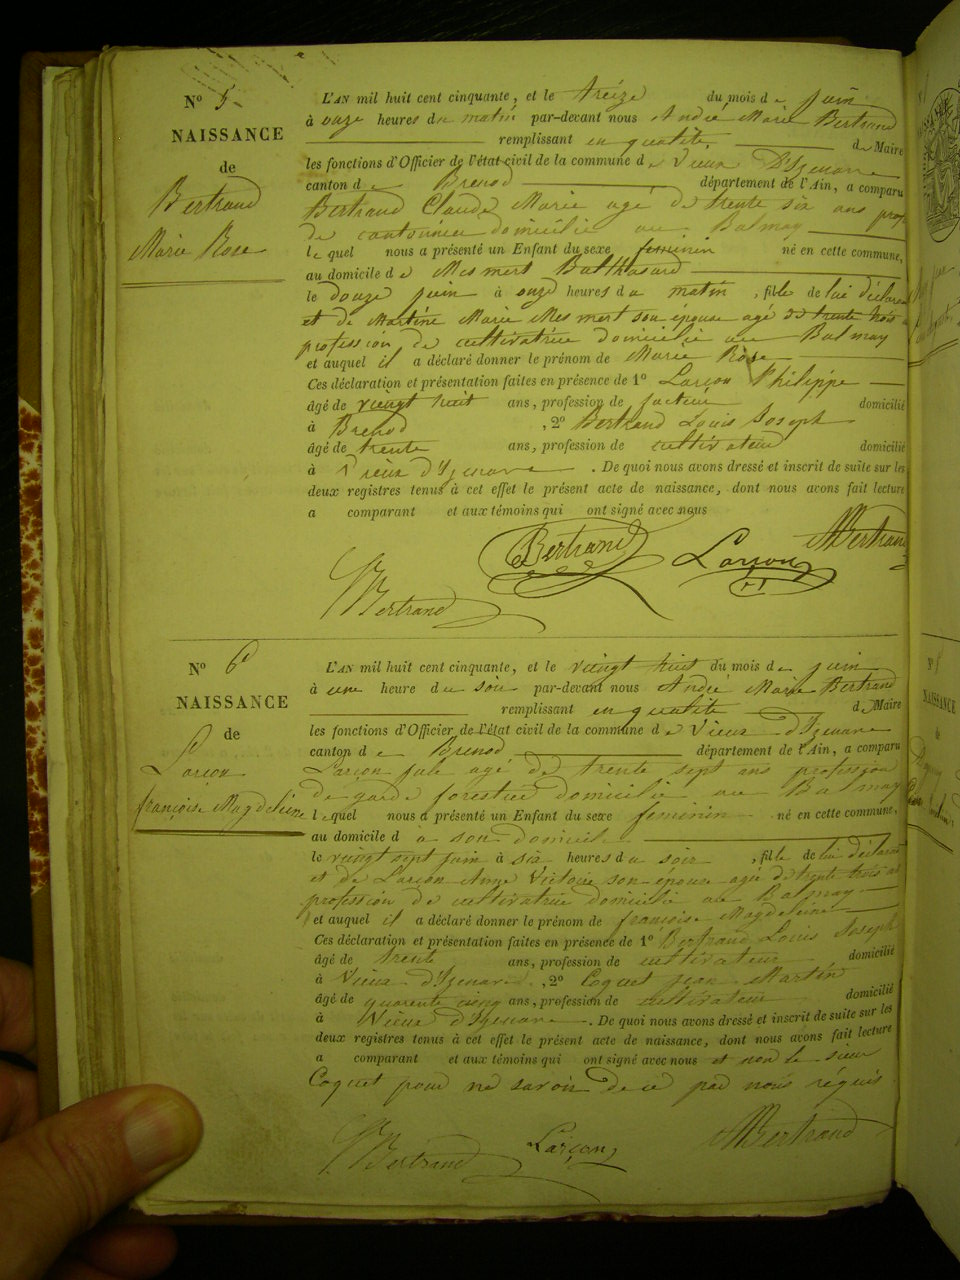 N° 5
NAISSANCE
de
Bertrand
Marie Rose
L'AN mil huit cent cinquante, et le treize du mois de juin
à onze heures du matin par-devant nous André Marie Bertrand
remplissant en qualité de Maire
les fonctions d'Officier de l'état civil de la commune de Vieux D'Izenave
canton de Brenod département de l'Ain, a comparu
Bertrand Claude Marie agé de trente six ans prof
de cantonnier domicilié au Balmay
le quel nous a présenté un Enfant du sexe feminin né en cette commune,
au domicile de Mesmert Balthasard
le douze juin à onze heures du matin, fille de lui déclarant
et de Martine Marie Mesmert son epouse agé de trente trois
profession de cultivatrice domicilié au Balmay
et auquel il a déclaré donner le prénom de Marie Rose
Ces déclaration et présentation faites en présence de 1° Larçon Philippe
âgé de vieingt huit ans, profession de facteur domicilié
à Brenod, 2° Bertrand Louis Joseph
âgé de trente ans, profession de cultivateur domicilié
à Vieux d'Izenave. De quoi nous avons dressé et inscrit de suite sur les
deux registres tenus à cet effet le présent acte de naissance, dont nous avons fait lecture
a comparant et aux témoins qui ont signé avec nous
Bertrand Larçon Bertrand
Bertrand
N° 6
NAISSANCE
de
Larçon
françoise Magdeleine
L'AN mil huit cent cinquante, et le vieingt huit du mois de juin
à une heure du soir par-devant nous André Marie Bertrand
remplissant en qualité de Maire
les fonctions d'Officier de l'état civil de la commune de Vieux d'Izenave
canton de Brenod département de l'Ain, a comparu
Larçon jule agé de trente sept ans profession
de garde forestier domicilié au Balmay
lequel nous a présenté un Enfant du sexe feminin né en cette commune,
au domicile d à son domicile
le vieingt sept juin à six heures du soir, fille de lui déclarant
et de Larçon Anne Victoire son épouse agée de trente trois ans
profession de cultivatrice domicilié au Balmay
et auquel il a déclaré donner le prénom de françoise Magdeleine
Ces déclaration et présentation faites en présence de 1° Bertrand Louis Joseph
âgé de trente ans, profession de cultivateur domicilié
à Vieux d'Izenave, 2° Coquet jean Martin
âgé de quarente cinq ans, profession de cultivateur domicilié
à Vieux d'Izenave. De quoi nous avons dressé et inscrit de suite sur les
deux registres tenus à cet effet le présent acte de naissance, dont nous avons fait lecture
a comparant et aux témoins qui ont signé avec nous et non le sieur
Coquet pour ne savoir de ce par nous réquis
Bertrand Larçon Bertrand